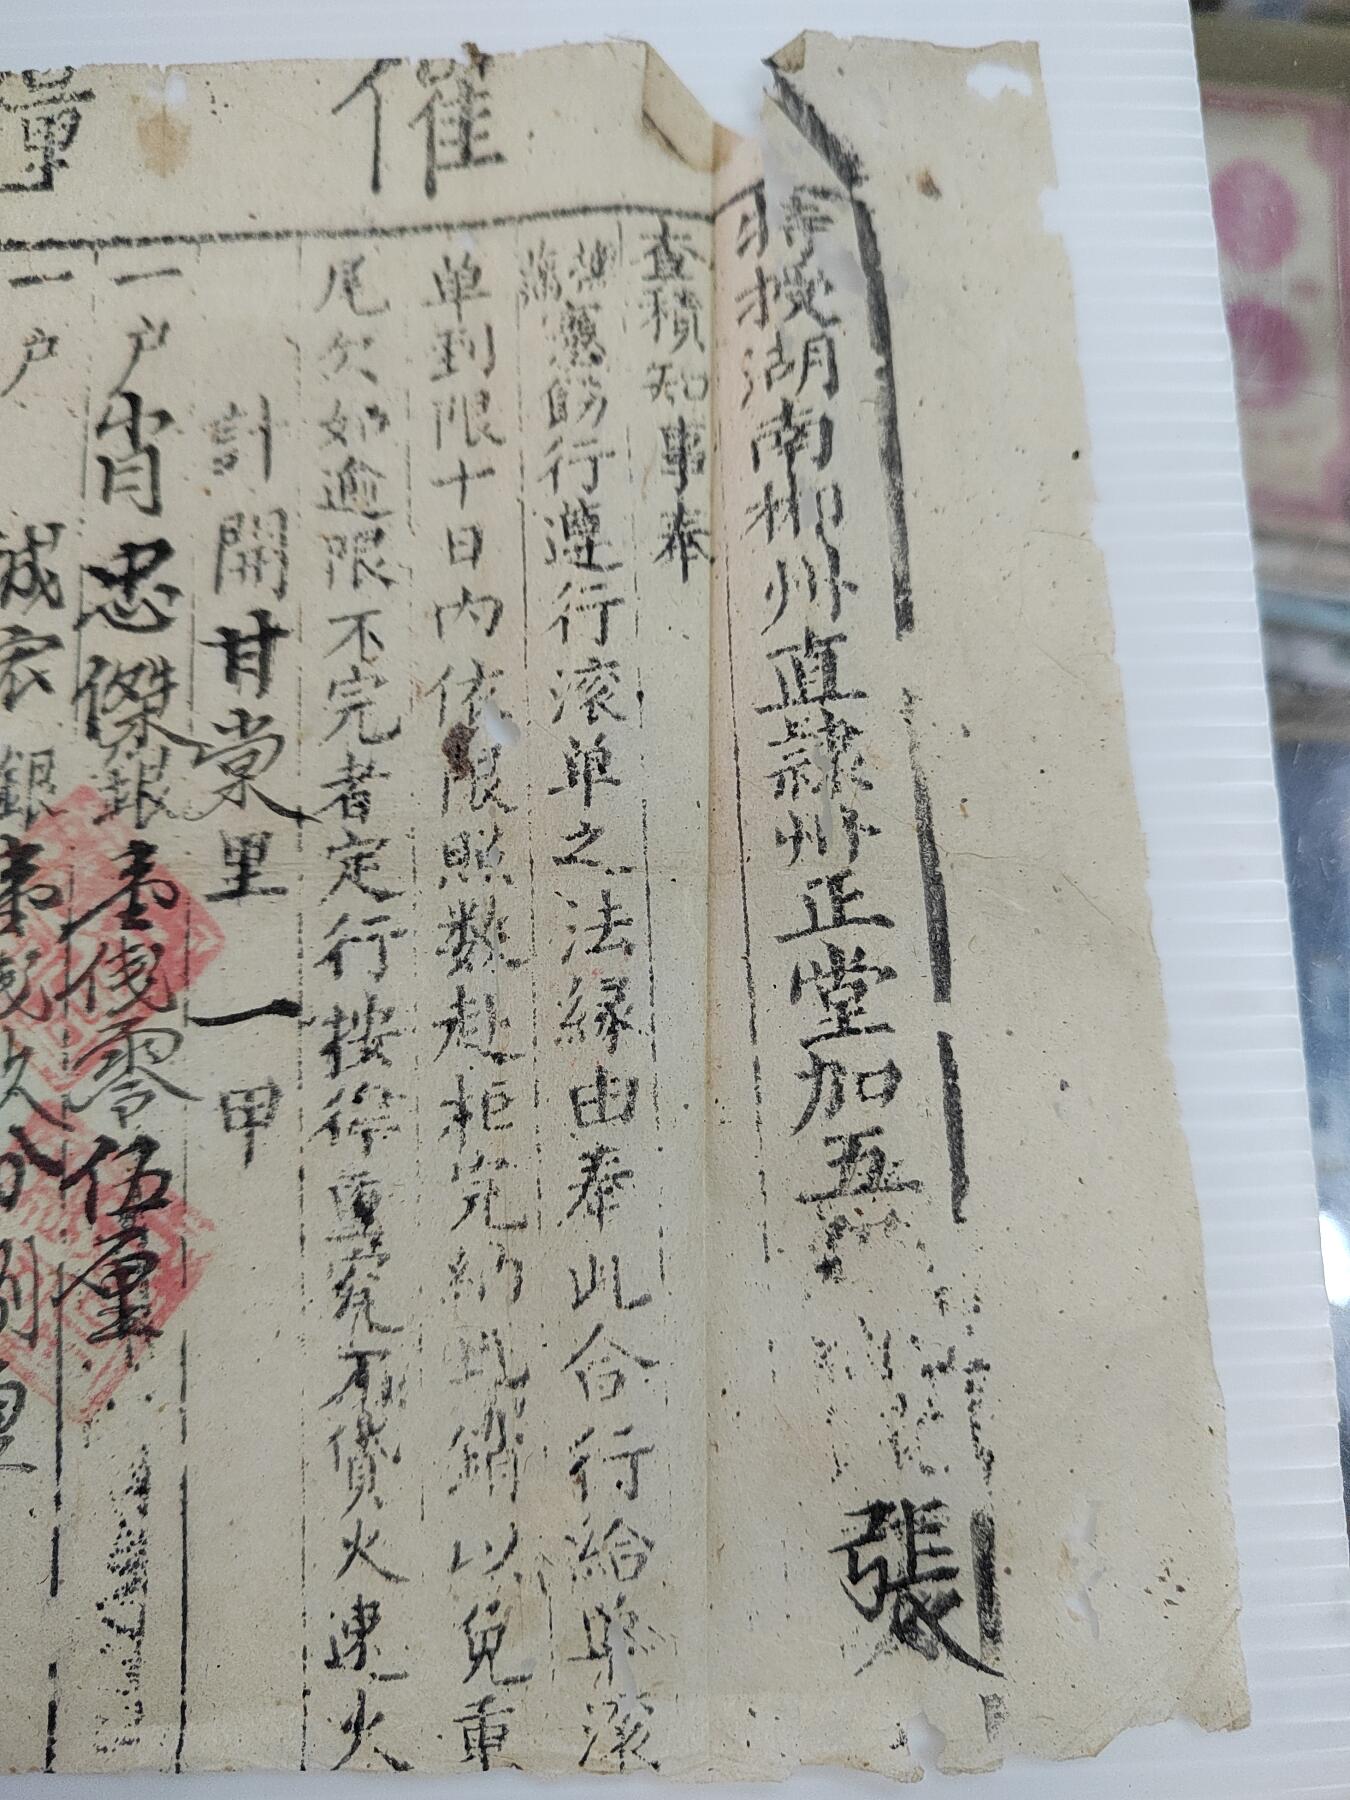 催
特授湖南郴州直隸州正堂加五 張
查積知事奉
藩憲飭行遵行滚单之法緣由奉此合行給單滚
单到限十日内依限照数赴柜完納 銷以免重
尾欠如逾限不完者定行按律重究不贷火速火
計開甘棠里一甲
一户肖忠傑銀壹伐零伍厘
一户 誠宏銀壹 玖分 厘